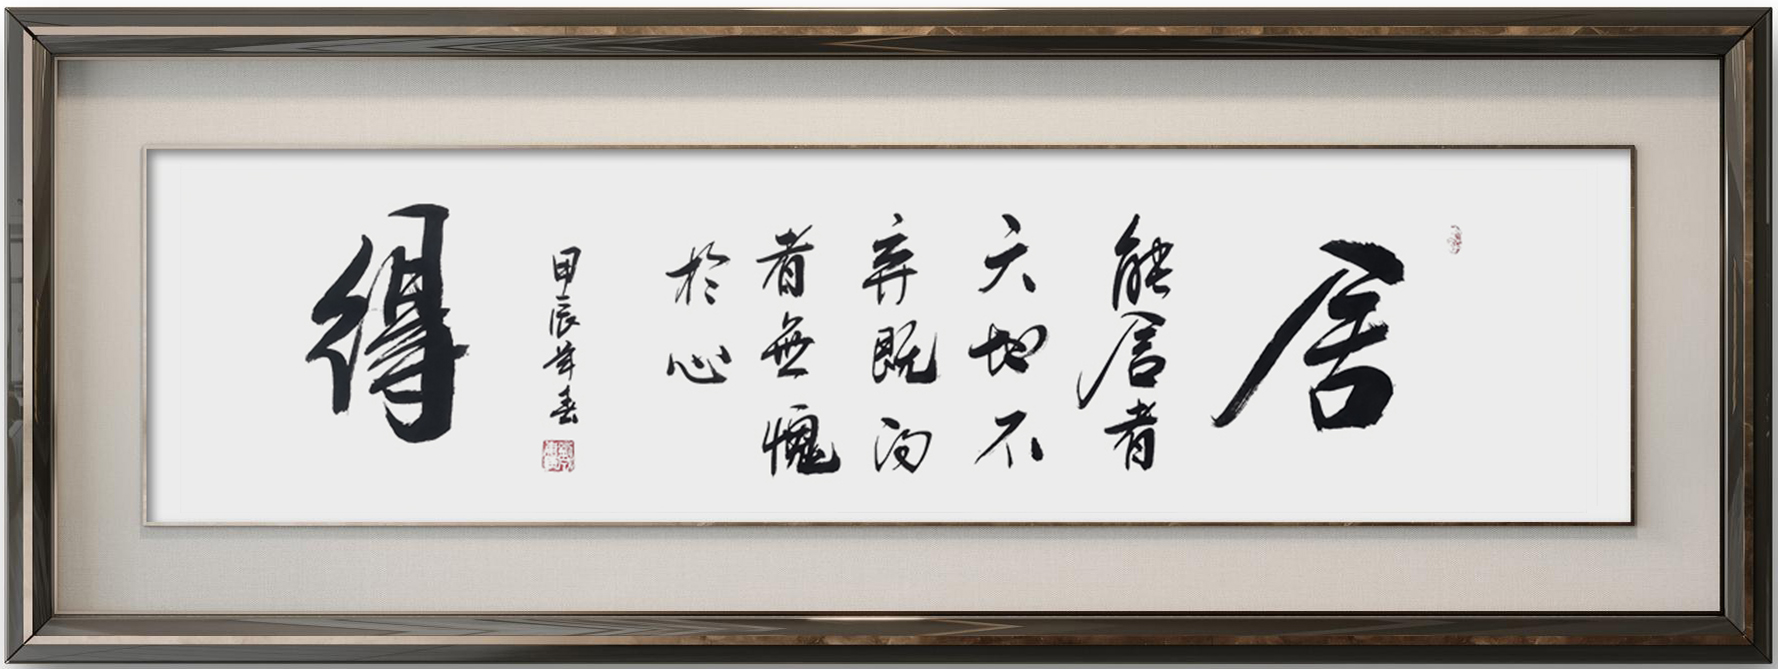 舍
能舍者
天地不
弃既得
者無愧
於心
甲辰年春
得